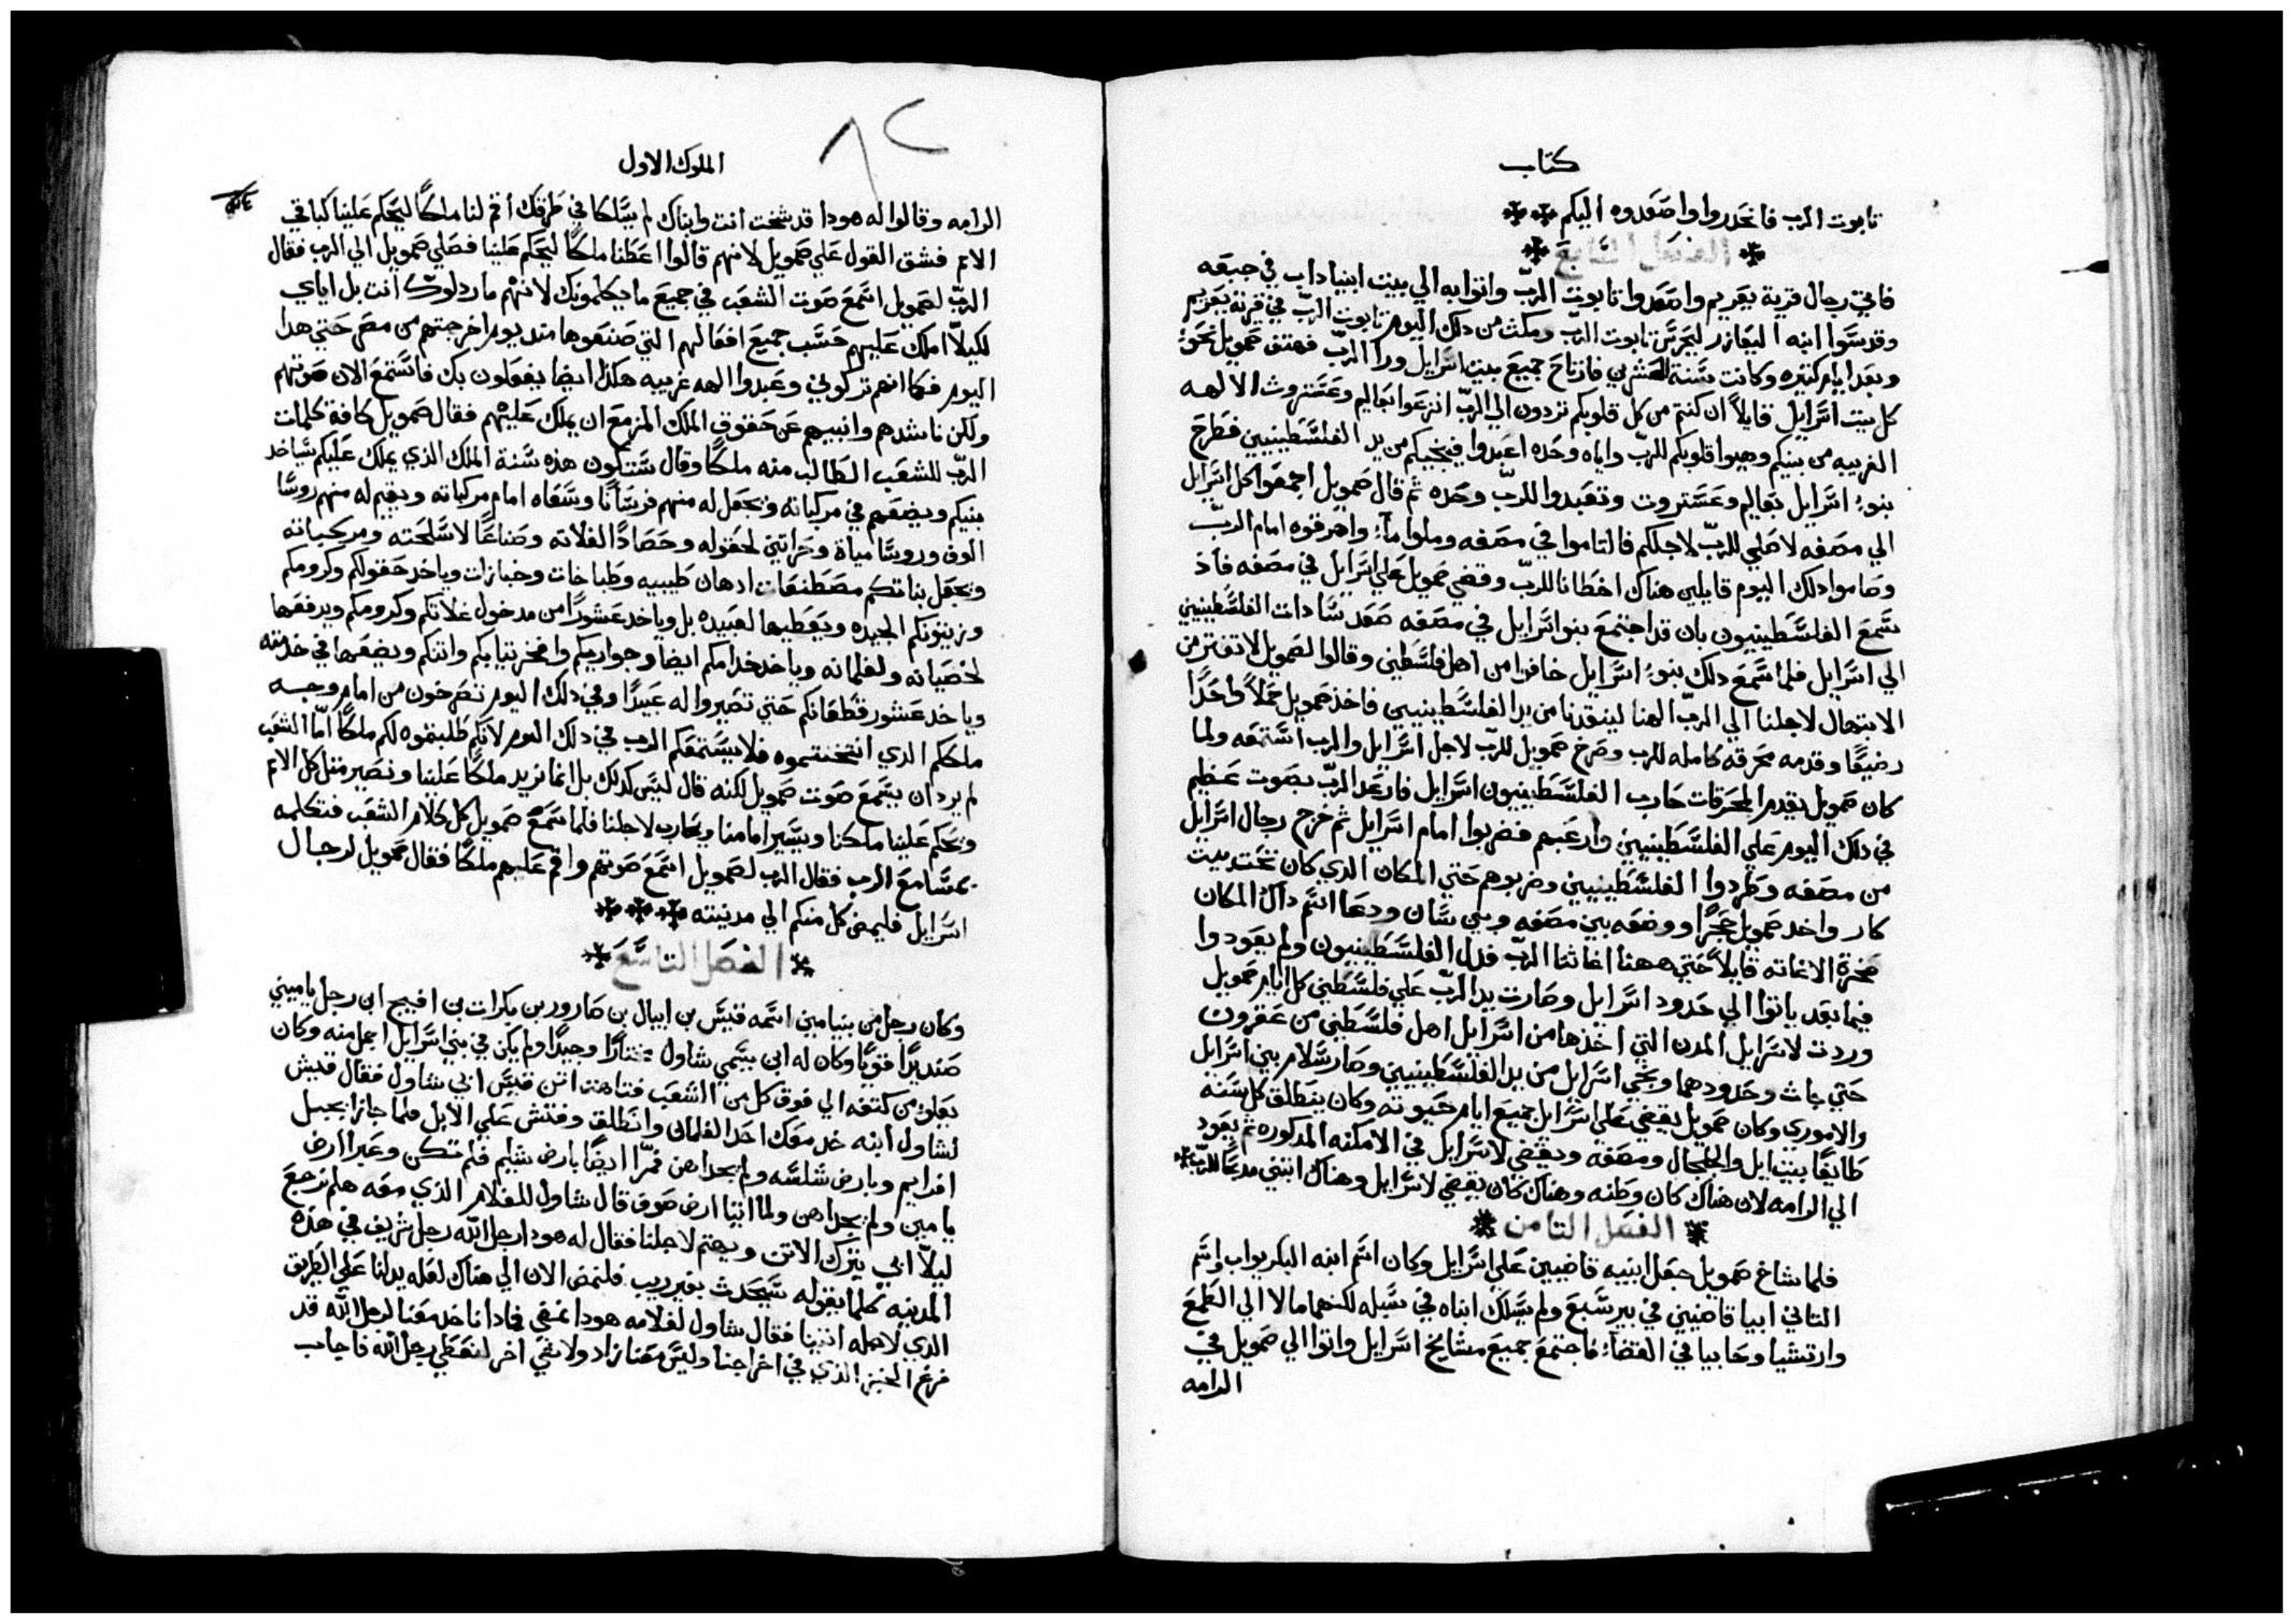 كتاب
تابوت الرب فانحدروا واصعدوه اليكم
الفصل السابع
فاتي رجال قرية يعريم واصعدوا تابوت الربّ واتوا به الي بيت ابيناداب في جبعه
وقدسَّوا ابنه اليعازر ليحرسَ تابوت الربّ ومكث من دلك اليوم تابوت الربّ في قرية يعريم
وبعد ايام كتيره وكانت سَّنة العشرين فارتاح جميعَ بيت اسَّرايل ورا الربّ فهتف صَمويل نحَو
كل بيت اسَّرايل قايلاً ان كنتم من كل قلوبكم تردون الي الربّ انزعوا بعاليم وعَشتروت الالهه
الغريبه من بينكم وهيوا قلوبكم للربّ واياه وحَده اعبدوا فينجيكم من يد الفلسَّطينيين فطرح
بنوا اسَّرايل بَعاليم وعَسَّتروت وتعَبدوا للربّ وحَده ثم قال صَمويل اجمعَوا كل اسَّرايل
الي مصَفه لاصَلي للربّ لاجلكم فالتاموا في مصَفه وملوا مآءً واهرقوه امام الربّ
وصَاموا دلك اليوم قايلين هناك اخطانا للربّ وقضي صَمويل عَلي اسَّرايل في مصَفه فاد
سَّمعَ الفلسَّطينيون بان قد اجتمعَ بنو اسَّرايل في مصَفه صَعَد سَّادات الفلسَّطينيين
الي اسَّرايل فلما سَّمعَ دلك بنوا اسَّرايل خافوا من اهل فلسَّطين وقالوا لصَمويل لا تفتر من
الابتهال لاجلنا الي الربّ الهنا لينقدنا من يد الفلسَّطينيين فاخذ صَمويل حَملاً واحَدًا
رضيعًا وقدمه محَرقه كامله للرب وصَرخ صَمويل للربّ لاجل اسَّرايل والرب اسَّتمعَه ولما
كان صَمويل يقدم المحَرقات حَارب الفلسَّطينيون اسَّرايل فارعَد الربّ بصَوت عَظيم
في دلك اليوم عَلي الفلسَّطينيين وارعَبهم فضربوا امام اسَّرايل ثم خرج رجال اسَّرايل
من مصَفه وطردوا الفلسَّطينيين وضربوهم حَتي المكان الدي كان تحَت بيت
كار واخد صَمويل حَجرًا ووضعَه بين مصَفه وبين سَّان ودعَا اسَّم داك المكان
صَخرة الاغاته قايلاً حَتي ههنا اغاتنا الربّ فدل الفلسَّطينيون ولم يعَودوا
فيما بعَد ياتوا الي حَدود اسَّرايل وصَارت يد الربّ عَلي فلسَّطين كل ايام صَمويل
وردت لاسَّرايل المدن التي اخذها من اسَّرايل اهل فلسَّطين من عَقرون
حَتي جات وحَدودهما ونجي اسَّرايل من يد الفلسَّطينيين وصَار سَّلام بين اسَّرايل
والاموري وكان صَمويل يقضي عَلي اسَّرايل جميعَ ايام حَيوته وكان ينطلق كل سَنه
طايفًا بيت ايل والجلجال ومصَفه ويقضي لاسَّرايل في الامكنه المدكوره ثم يعَود
الي الرامه لان هناك كان وطنه وهناك كان يقضي لاسَّرايل وهناك ابتني مدبحًا للربّ
الفصَل التامن
فلما شاخ صَمويل جعَل ابنيه قاضيين عَلي اسَّرايل وكان اسَّم ابنه البكر يواب واسَّم
التاني ابيا قاضيين في بير سَّبعَ ولم يسَّلك ابناه في سَّبله لكنهما مالا الي الطمعَ
وارتشيا وحَابيا في القضاء فاجتمعَ جميعَ مشايخ اسَّرايل واتوا الي صَمويل في
الرامه
الملوك الاول
٨٢
الرامه وقالوا له هودا قد شخت انت وابناك لم يسَّلكا في طرقك اقم لنا ملكًا ليحَكم عَلينا كباقي
الامم فشق القول عَلي صَمويل لانهم قالوا اعَطنا ملكًا ليحَكم عَلينا فصَلي صَمويل الي الرب فقال
الربّ لصَمويل اسَّمعَ صَوت الشعَب في جميعَ ما يكلمونك لانهم ما ردلوك انت بل اياي
لكيلا املك عَليهم حَسَّب جميعَ افعَالهم التي صَنعَوها مند يوم اخرجتهم من مصَر حَتي هدا
اليوم فكما انهم تركوني وعَبدوا الهه غريبه هكذا ايضا يفعَلون بك فاسَّتمعَ الان صَوتهم
ولكن ناشدهم وانبيهم عَن حَقوق الملك المزمعَ ان يملك عَليهم فقال صَمويل كافة كلمات
الربّ للشعَب الطالب منه ملكًا وقال سَّتكون هذه سَّنة الملك الذي يملك عَليكم سَّياخد
بنيكم ويضعَهم في مركباته ويجعَل له منهم فرسَّانًا وسَّعَاه امام مركباته ويقيم له منهم روسَّا
الوف وروسَّا مياة وحَراتين لحَقوله وحَصَادًا لغلاته وصَناعًا لاسَّلحَته ومركباته
ويجعَل بناتكم مصَطنعَات ادهان طيبيه وطباخات وخبازات وياخد حَقولكم وكرومكم
وزيتونكم الجيده ويعَطيها لعَبيده بل وياخد عَشورًا من مدخول غلاتكم وكرومكم ويدفعَها
لخصَيانه ولغلمانه وياخد خدامكم ايضا وجواريكم وافخر تيابكم واتنكم ويضعَها في خدمته
وياخد عَشور قطعَانكم حَتي تصَيروا له عَبيدًا وفي دلك اليوم تصَرخون من امام وجه
ملككم الدي انتخبتموه فلا يسَّتمعَكم الرب في دلك اليوم لانكم طلبتموه لكم ملكًا امّا الشعَب
لم يرد ان يسَّمعَ صَوت صَمويل لكنه قال ليسَّ كدلك بل انما نريد ملكًا عَلينا ونصَير متل كل الامم
ويحَكم عَلينا ملكنا ويسَّير امامنا ويحَارب لاجلنا فلما سَّمعَ صَمويل كل كلام الشعَب فتكلمه
بمسَّامعَ الرب فقال الرب لصَمويل اسَّمعَ صَوتهم واقم عَليهم ملكًا فقال صَمويل لرجال
اسَّرايل فليمض كل منكم الي مدينته
الفصَل التاسَّعَ
وكان رجل من بنيامين اسَّمه قيسَّ بن ابيال بن صَارور بن بكرات بن افييح ابن رجل ياميني
صَنديدًا قويًا وكان له ابن يسَّمي شاول مختارًا وجيدًا ولم يكن في بني اسَّرايل اجمل منه وكان
يعَلو من كتفه الي فوق كل من الشعَب فتاهت اتن قيسَّ ابي شاول فقال قيسَّ
لشاول ابنه خد معَك احَد الغلمان وانطلق وفتش عَلي الابل فلما جازا بجبل
افرايم وبارض شلسَّه ولم يجداهن فمّرا ايضًا بارض شليم فلم تكن وعَبرا ارض
يامين ولم يجداهن ولما اتيا ارض صَوف قال شاول للغلام الذي معَه هلم نرجعَ
ليلاّ ابي يترك الاتن ويهتم لاجلنا فقال له هودا رجل الله رجل شريف في هذه
المدينه كلما يقوله سَّيحَدث بغير ريب فلنمض الان الي هناك لعَله يدلنا عَلي الطريق
الدي لاجله اتينا فقال شاول لغلامه هودا نمضي فمادا ناخد معَنا لرجل الله قد
فرغ الخبز الذي في اخراجنا وليسَّ معَنا زاد ولا شي اخر لنعَطي رجل الله فاجاب